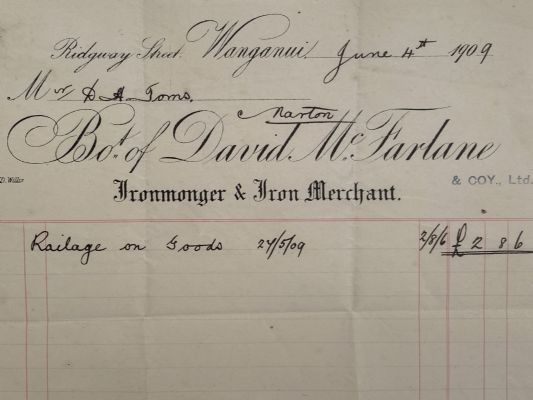 Ridgway Street. Wanganui, June 4th 1909
Mr D A Toms.
Marton
Bot. of David McFarlane
& COY., Ltd.
Ironmonger & Iron Merchant.
Railage on Goods 27/5/09 2/8/6 £ 2 8 6